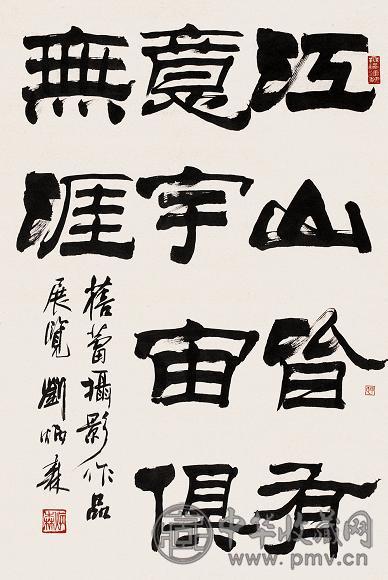 江山皆有
意宇宙俱
無涯
蕾攝影作品
展覽 劉炳森
中华收藏网
www.pmv.cn